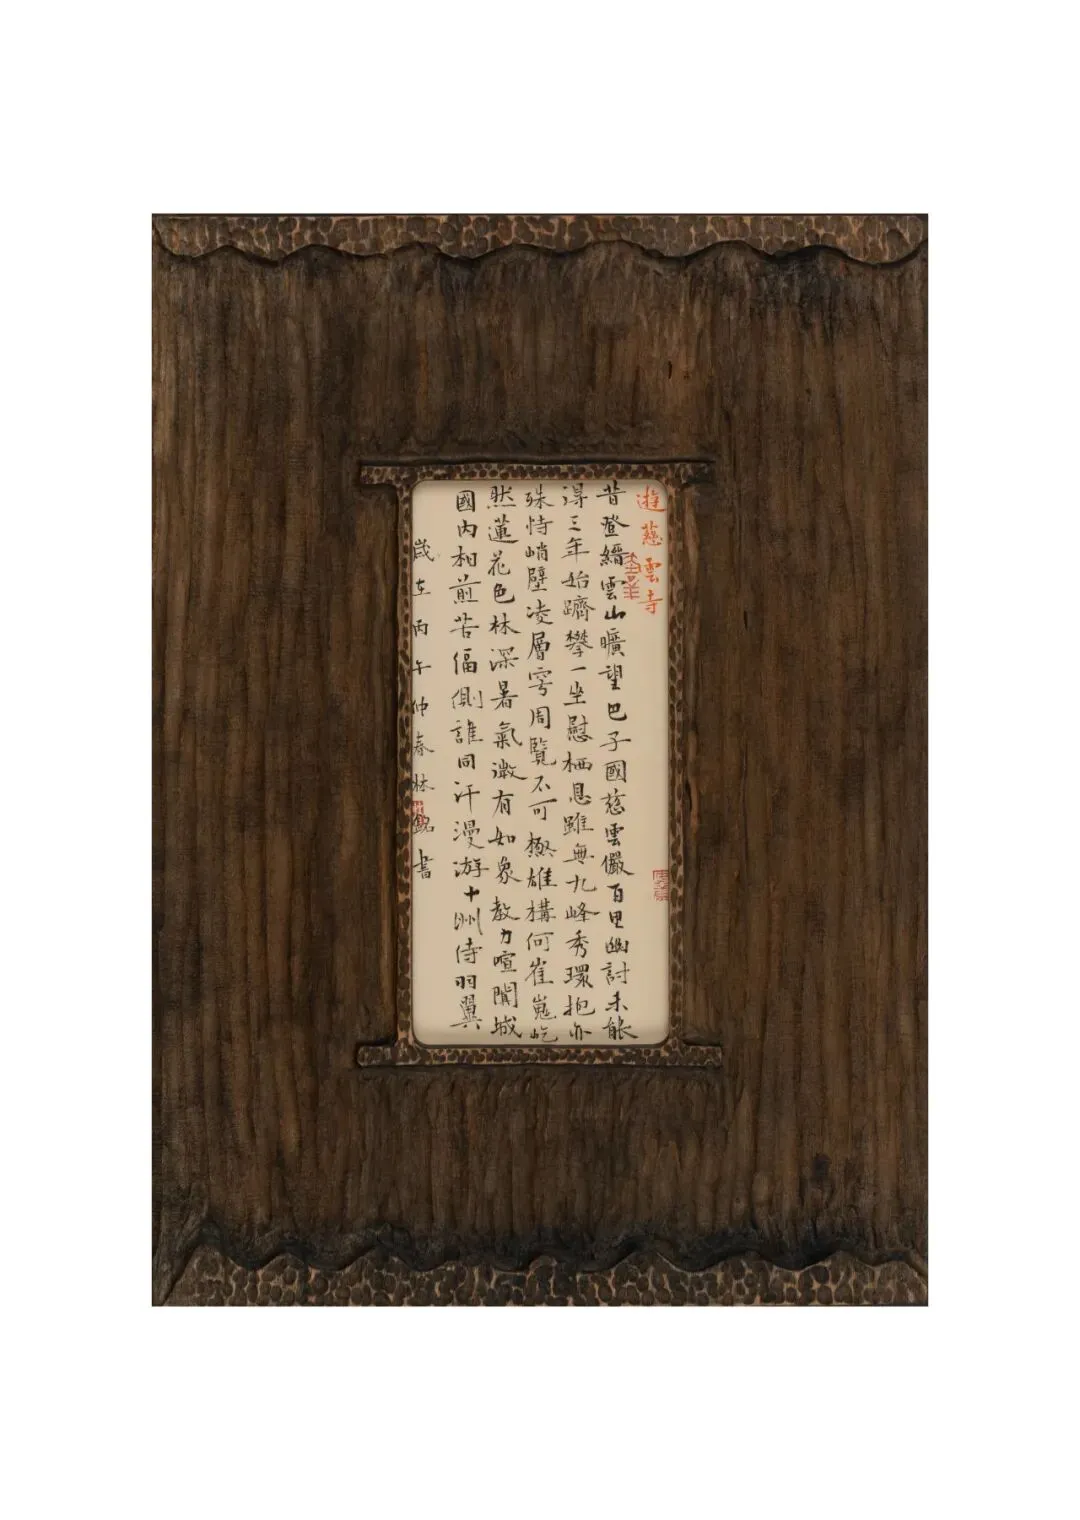 遊慈雲寺
昔登縉雲山曠望巴子國慈雲儼百里幽討未能
得三年始躋攀一坐慰栖息雖無九峰秀環抱亦
殊特峭壁凌層穹周覽不可極雄構何崔嵬屹
然蓮花色林深暑氣澂有如象教力喧闐城
國內相煎苦偪側誰同汗漫游十洲侍羽翼
歲在丙午仲春林銘書